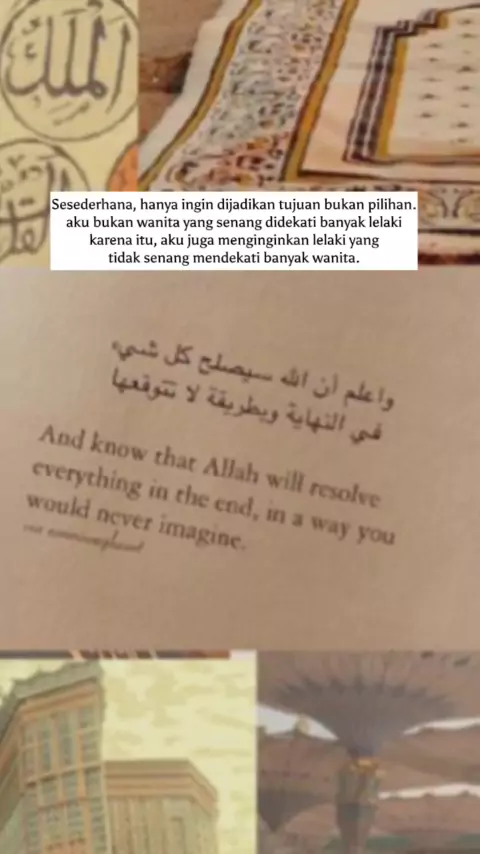 الملك
Sesederhana, hanya ingin dijadikan tujuan bukan pilihan.
aku bukan wanita yang senang didekati banyak lelaki
karena itu, aku juga menginginkan lelaki yang
tidak senang mendekati banyak wanita.
واعلم أن الله سيصلح كل شيء
في النهاية وبطريقة لا تتوقعها
And know that Allah will resolve
everything in the end, in a way you
would never imagine.